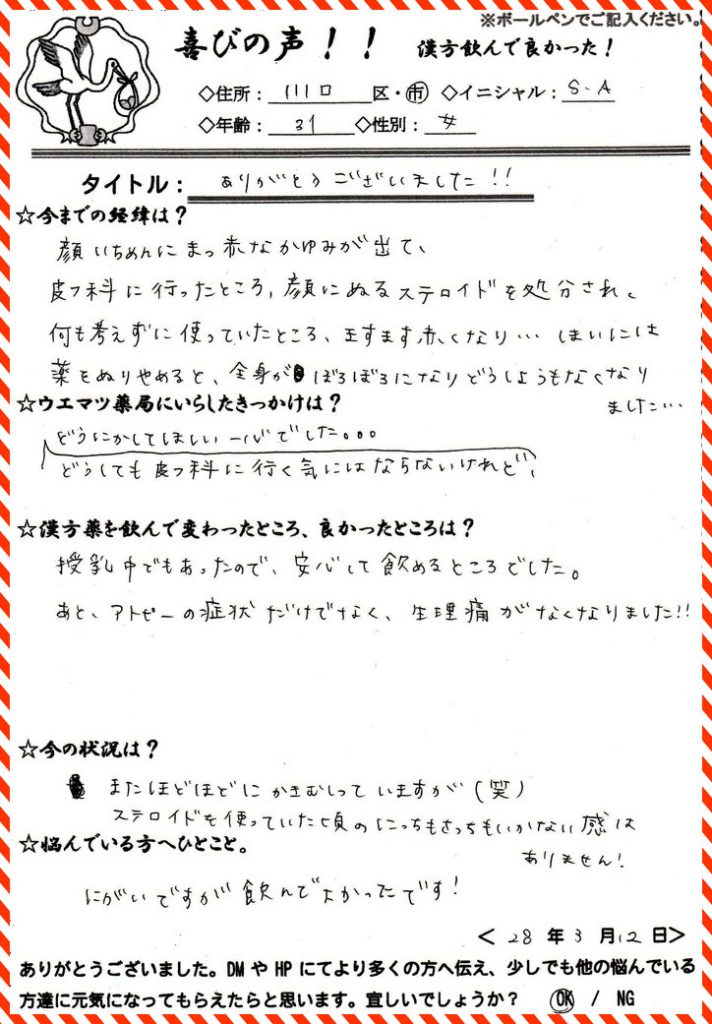 ※ボールペンでご記入ください。
喜びの声！！ 漢方飲んで良かった！
◇住所：川口 区・市 ◇イニシャル：S.A
◇年齢：31 ◇性別：女
タイトル：ありがとうございました!!
☆今までの経緯は？
顔いちめんにまっ赤なかゆみが出て、
皮フ科に行ったところ、顔にぬるステロイドを処分され、
何も考えずに使っていたところ、ますます赤くなり… しまいには
薬をぬりやめると、全身がぼろぼろになりどうしようもなくなり
ました…
☆ウエマツ薬局にいらしたきっかけは？
どうにかしてほしい一心でした。。。
どうしても皮フ科に行く気にはならないけれど、
☆漢方薬を飲んで変わったところ、良かったところは？
授乳中でもあったので、安心して飲めるところでした。
あと、アトピーの症状だけでなく、生理痛がなくなりました!!
☆今の状況は？
まだほどほどにかきむしっていますが（笑）
ステロイドを使っていた頃のにっちもさっちもいかない感は
ありません！
☆悩んでいる方へひとこと。
にがいですが飲んでよかったです！
＜28年3月12日＞
ありがとうございました。DMやHPにてより多くの方へ伝え、少しでも他の悩んでいる
方達に元気になってもらえたらと思います。宜しいでしょうか？ OK / NG